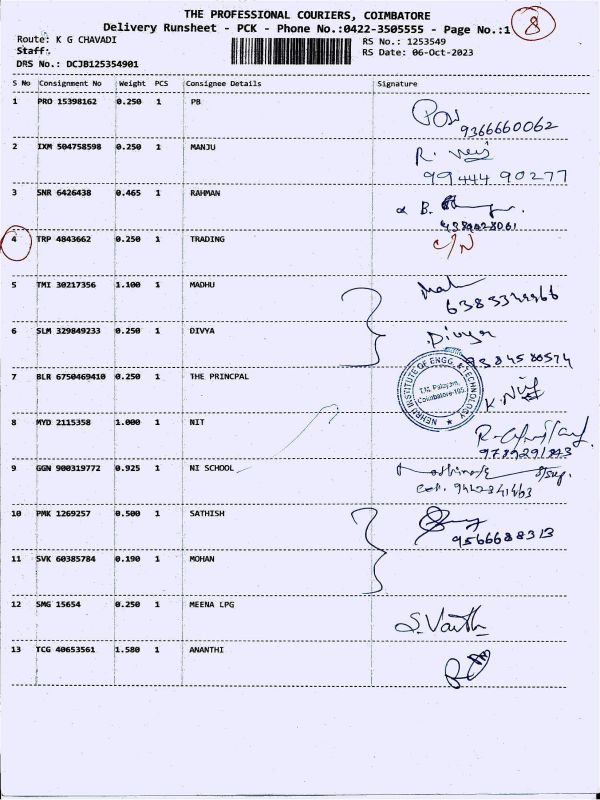 THE PROFESSIONAL COURIERS, COIMBATORE
Delivery Runsheet - PCK - Phone No.:0422-3505555 - Page No.:1 8
Route: K G CHAVADI RS No.: 1253549
Staff: RS Date: 06-Oct-2023
DRS No.: DCJB125354901
S No Consignment No Weight PCS Consignee Details Signature
1 PRO 15398162 0.250 1 PB
9366660062
2 IXM 504758598 0.250 1 MANJU R.
99444 90277
3 SNR 6426438 0.465 1 RAHMAN B.
4 TRP 4843662 0.250 1 TRADING C/N
5 TMI 30217356 1.100 1 MADHU
6 SLM 329849233 0.250 1 DIVYA Divya
9384580574
7 BLR 6750469410 0.250 1 THE PRINCPAL
NEHRU INSTITUTE OF ENGG & TECHNOLOGY
T.M. Palayam,
Coimbatore-105.
8 MYD 2115358 1.000 1 NIT
9789291843
9 GGN 900319772 0.925 1 NI SCHOOL
10 PMK 1269257 0.500 1 SATHISH
9566688313
11 SVK 60385784 0.190 1 MOHAN
12 SMG 15654 0.250 1 MEENA LPG
13 TCG 40653561 1.580 1 ANANTHI